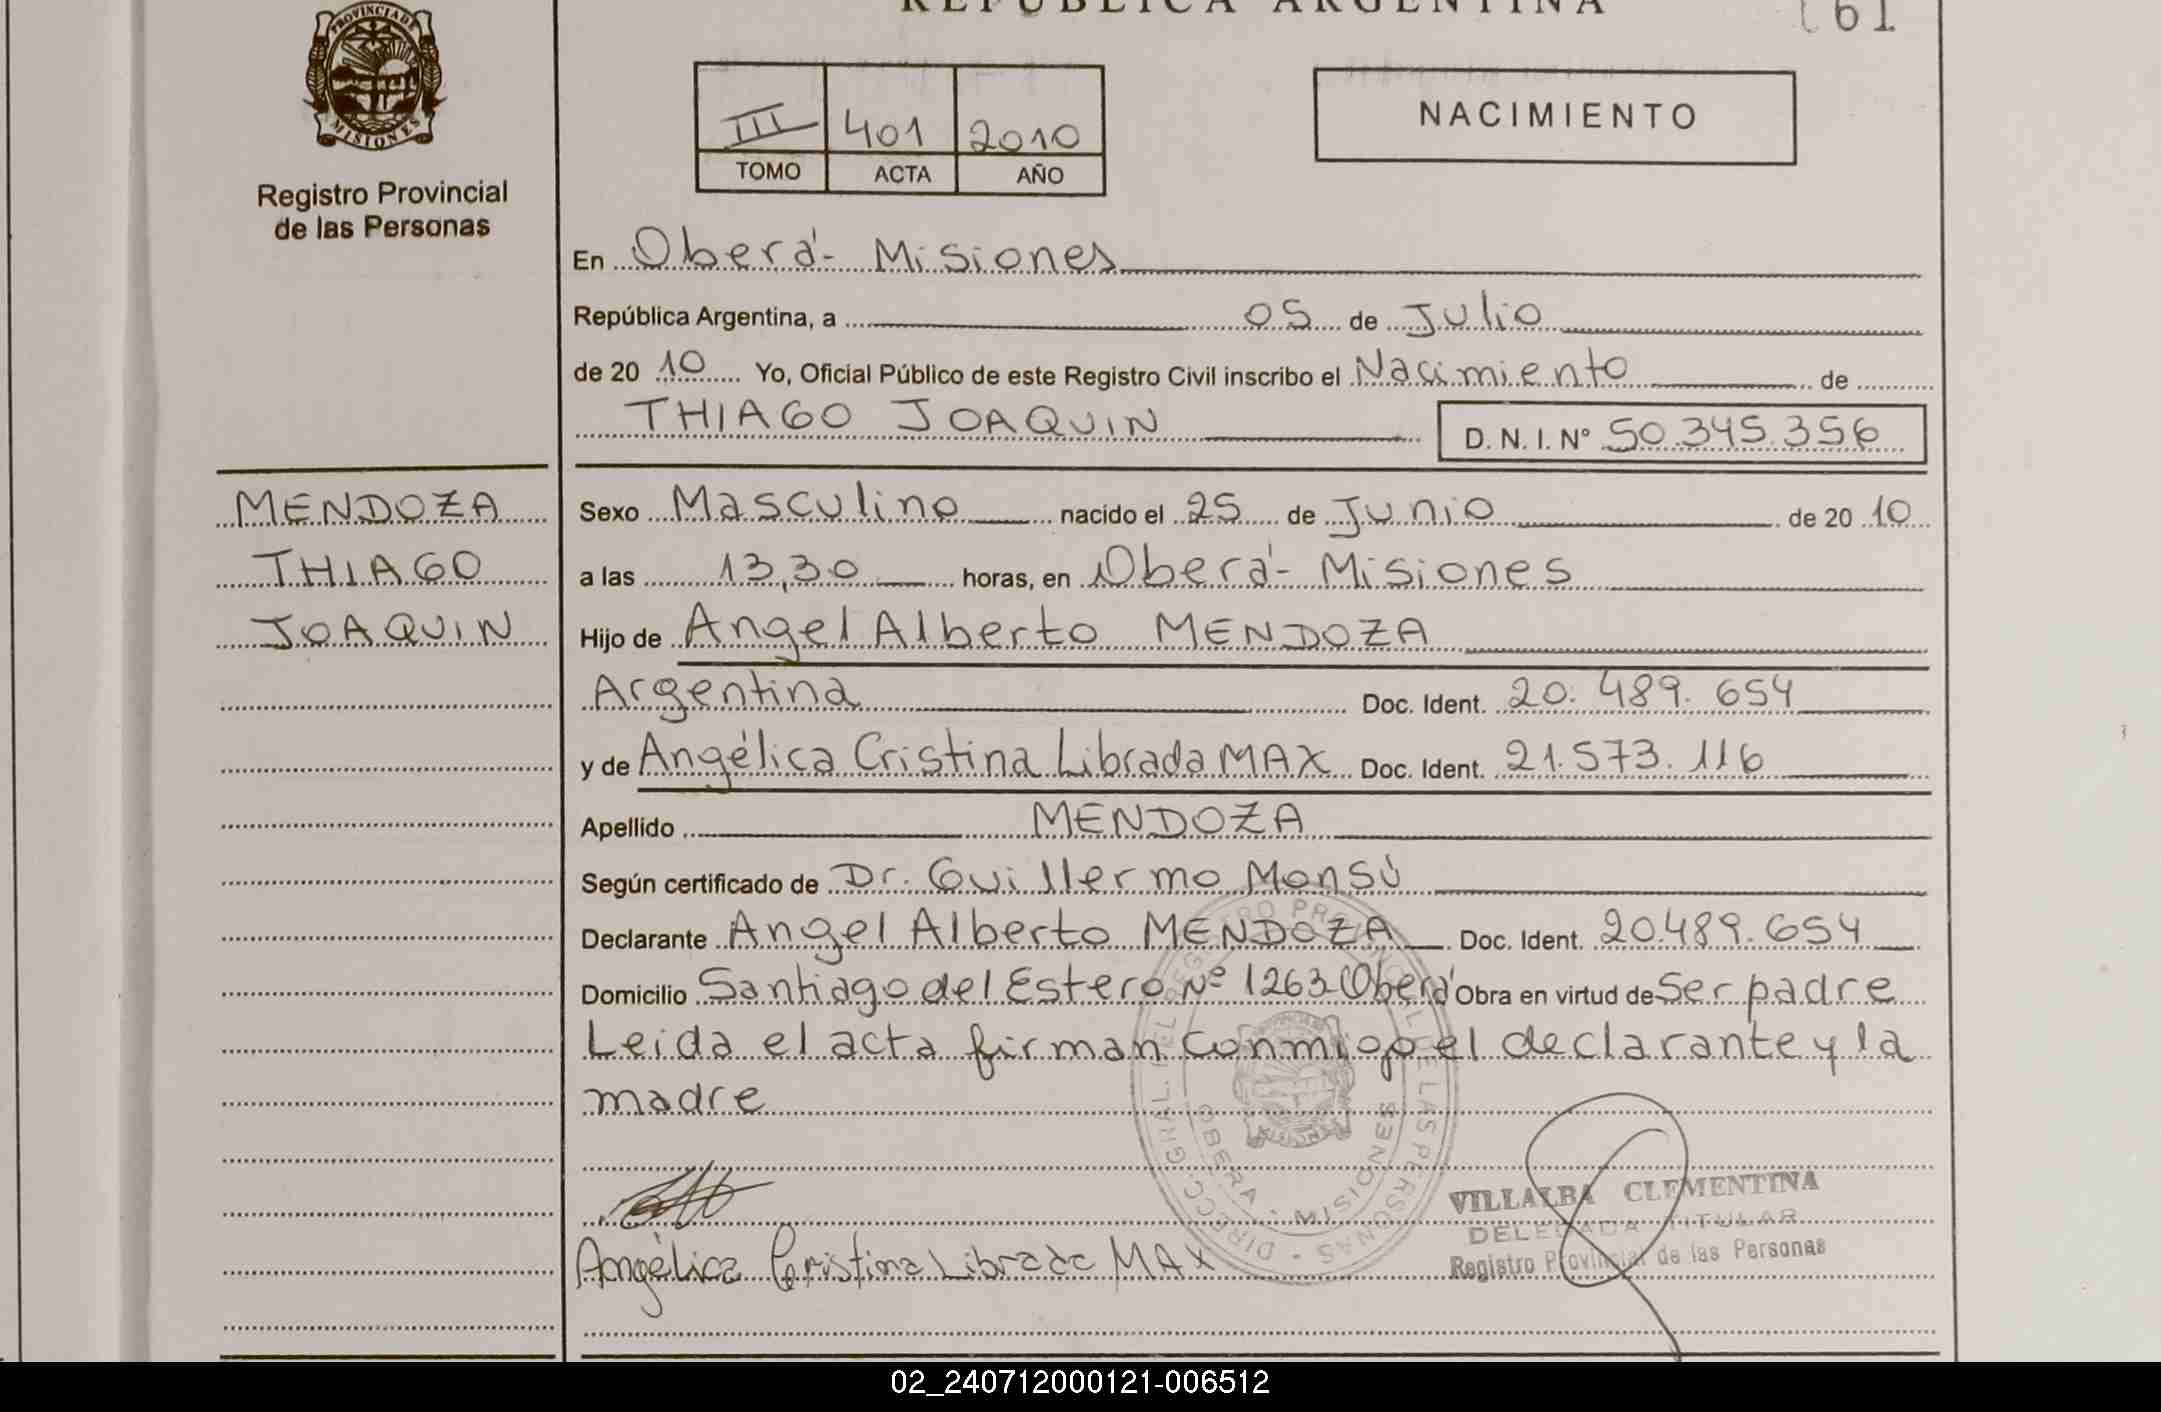 REPUBLICA ARGENTINA
61
PROVINCIA DE
MISIONES
Registro Provincial
de las Personas
III 401 2010
TOMO ACTA AÑO
NACIMIENTO
En Oberá - Misiones
República Argentina, a 05 de Julio
de 20 10 Yo, Oficial Público de este Registro Civil inscribo el Nacimiento de
THIAGO JOAQUIN D. N. I. Nº 50.345.356
MENDOZA
THIAGO
JOAQUIN
Sexo Masculino nacido el 25 de Junio de 20 10
a las 13,30 horas, en Oberá - Misiones
Hijo de Angel Alberto MENDOZA
Argentina Doc. Ident. 20.489.654
y de Angélica Cristina Librada MAX Doc. Ident. 21.573.116
Apellido MENDOZA
Según certificado de Dr. Guillermo Monsú
Declarante Angel Alberto MENDOZA Doc. Ident. 20.489.654
Domicilio Santiago del Estero Nº 1263 Oberá Obra en virtud de Ser padre
Leida el acta firman conmigo el declarante y la
madre
DIRECC. GRAL. DEL REGISTRO PROVINCIAL DE LAS PERSONAS
OBERA - MISIONES
VILLALBA CLEMENTINA
DELEGADA TITULAR
Registro Provincial de las Personas
Angélica Cristina Librada MAX
02_240712000121-006512